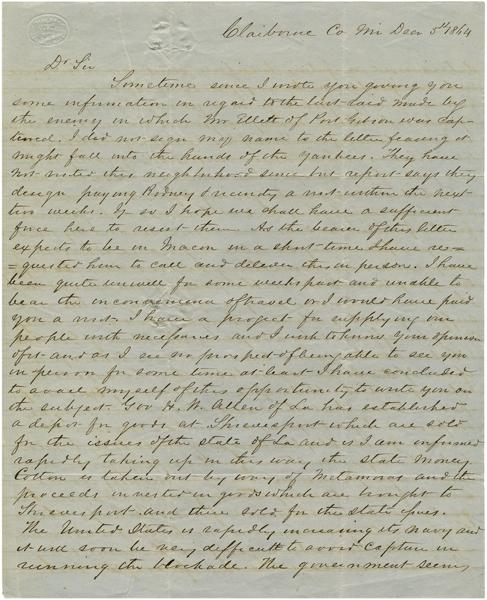 Claiborne Co Mi Decr 5th 1864
Dr Sir
Sometime since I wrote you giving you
some information in regard to the last raid made by
the enemy in which Mr Ellett of Port Gibson was cap-
tured. I did not sign my name to the letter fearing it
might fall into the hands of the Yankees. They have
not visited this neighborhood since but report says they
design paying Rodney & vicinity a visit within the next
two weeks. If so I hope we shall have a sufficient
force here to resist them. As the bearer of this letter
expects to be in Macon in a short time I have re=
=quested him to call and deliver this in person. I have
been quite unwell for some weeks past and unable to
bear the inconvenience of travel or I would have paid
you a visit. I have a project for supplying our
people with necessaries and I wish to know your opinion
of it and as I see no prospect of being able to see you
in person for some time at least I have concluded
to avail myself of this opportunity to write you on
the subject. Gov H. W. Allen of La has established
a depot for goods at Shreevesport which are sold
for the issues of the state of La and is I am informed
rapidly taking up in this way the state money
Cotton is taken out by way of Metamoras and the
proceeds invested in goods which are brought to
Shrevesport and there sold for the state issues.
The United States is rapidly increasing its Navy and
it will soon be very difficult to avoid capture in
running the blockade. The government seems